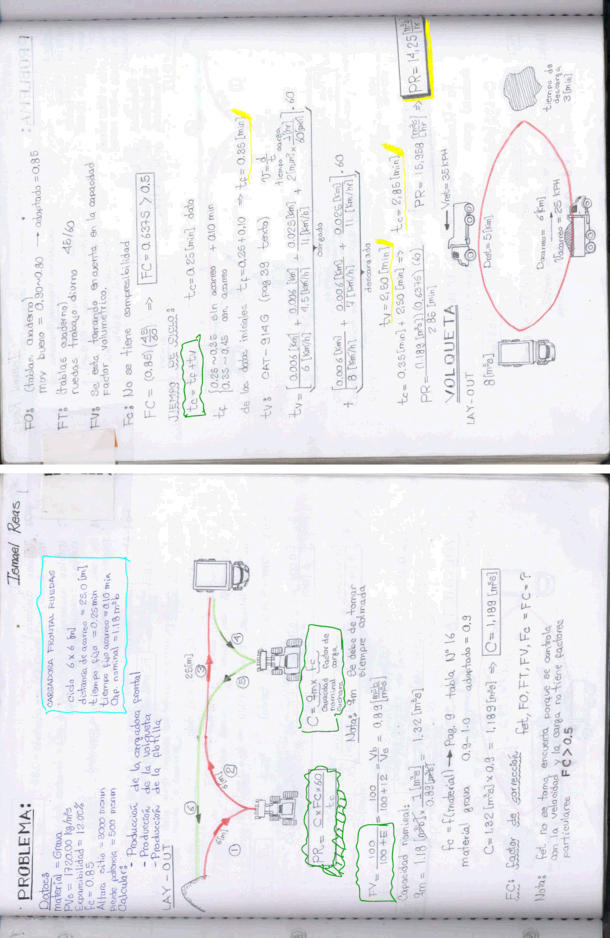 Ismael Reas
• PROBLEMA:
Datos:
material = Grava
PVs = 1720.00 kg/m³s
Expansibilidad = 12.00%
Fc = 0.85
Altura sitio = 3000 msnm
Calcular:
- Producción de la cargadora frontal
- Producción de la volqueta
- Producción de la flotilla
CARGADORA FRONTAL RUEDAS
Ciclo 6 x 6 [m]
distancia de acarreo = 25.0 [m]
tiempo fijo = 0.25 min
tiempo fijo acarreo = 0.10 min
Cap. nominal = 1.18 m³b
LAY-OUT
6[m]
①
②
6[m]
③
25[m]
④
⑤
⑥
PR = C x FC x 60 / tc
C = qm x fc
Capacidad nominal
Factor de carga
Nota: qm Se debe de tomar
siempre colmada
FV = 100 / 100+E = 100 / 100+12 = Vb / Vs = 0.89 [m³b / m³s]
Capacidad nominal:
qm = 1.18 [m³b] x 1 / 0.89 [m³s] / [m³b] = 1.32 [m³s]
fc = f(material) → Pag. 9 tabla N° 16
material grava 0.9-1.0 adoptado = 0.9
C = 1.32 [m³s] x 0.9 = 1.189 [m³s] ⇒ C = 1.189 [m³s]
FC: factor de corrección fet, FO, FT, FV, Fc = FC = ?
Nota: fet. no se toma encuenta porque se controla
con la velocidad y la carga no tiene factores
particulares FC > 0.5
FO: (tablas cuaderno)
muy bueno = 0.90~0.80 → adoptado = 0.85
FT: (tablas cuaderno)
ruedas trabajo diurno 45/60
FV: Se esta tomando encuenta en la capacidad
factor volumetrico.
Fc: No se tiene compresibilidad
FC = (0.85)(45/60) ⇒ FC = 0.6375 > 0.5
TIEMPO DE CICLO:
tc = tf + tv
tc = 0.25 [min] dato
tf { 0.25~0.35 sin acarreo + 0.10 min
0.35~0.45 con acarreo
de los datos iniciales tf = 0.25 + 0.10 ⇒ tf = 0.35 [min]
tv: CAT-914G (pag 39 texto) V = d/t
tiempo carga
tv = [ 0.006 [km] / 6 [km/h] + 0.006 [km] / 4.5 [km/h] + 0.025 [km] / 11 [km/h] + 2 [min] x 1 [hr] / 60 [min] ] . 60
cargado
+ [ 0.006 [km] / 8 [km/h] + 0.006 [km] / 7 [km/h] + 0.025 [km] / 11 [km/hr] ] . 60
descargado
tv = 2.50 [min]
tc = 0.35 [min] + 2.50 [min] ⇒ tc = 2.85 [min]
PR = 0.189 [m³s] (0.6375) (60) / 2.85 [min] PR = 15.958 [m³s / hr] ⇒ PR = 14.25 [m³b / hr]
VOLQUETA
LAY-OUT
8 [m³s]
← Vret = 35 KPH
Dret = 5 [Km]
Dacarreo = 6 Km
Vacarreo = 25 KPH
tiempo de
descarga
3 [min]